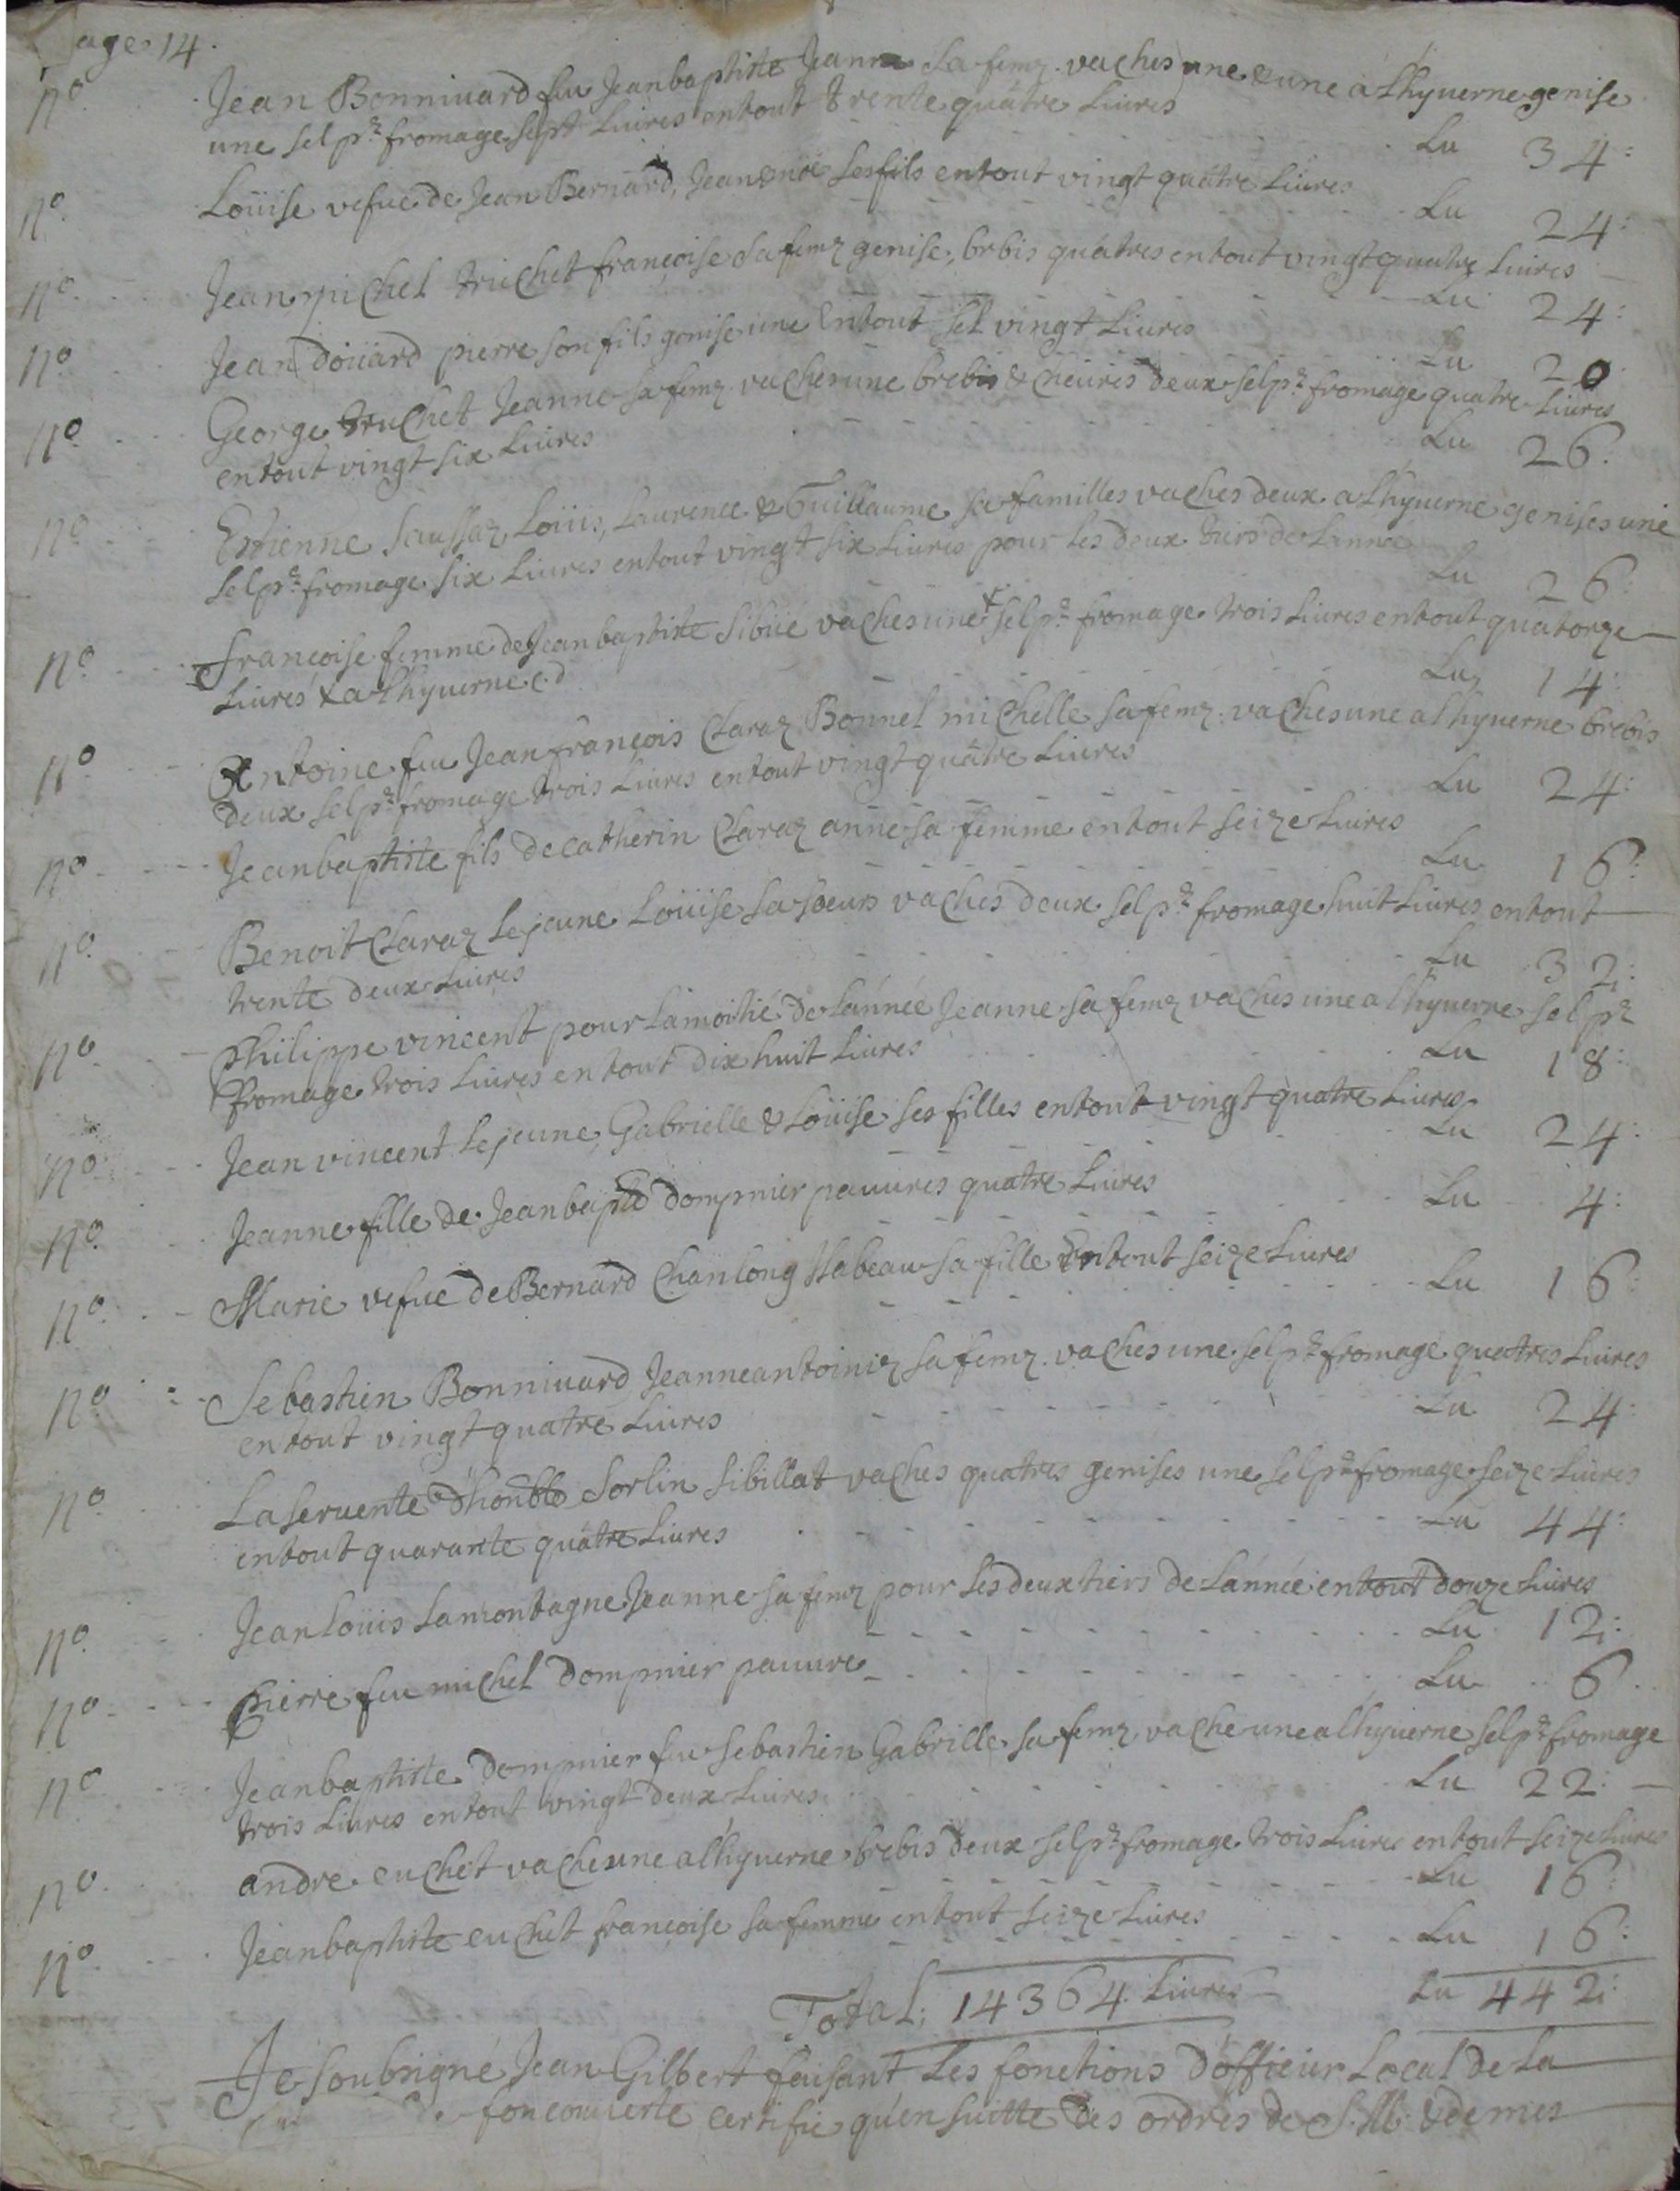 page 14.
n° Jean Bonniuard feu Jeanbaptiste Jeanne sa femz. vaches une & une a lhyuerne genise
une sel pr fromage sept Liures entout trente quatre Liures
Lu 34:
n° Loüise vefue de Jean Bernard, Jean & noé ses fils entout vingt quatre Liures
Lu 24:
n° Jean michel truchet françoise sa femz genise, brbis quatres entout vingt quatre Liures
Lu 24:
n° Jean doüard pierre son fils genise une Entout sel vingt Liures
Lu 20
n° George truchet Jeanne sa femz vaches une brebis & cheures deux sel pr fromage quatre Liures
entout vingt six Liures
Lu 26.
n° Estienne Saussaz Loüis, Laurence & Guillaume sa familles vaches deux a lhyuerne genises une
sel pr fromage six Liures entout vingt six Liures pour les deux tiers de Lannée
Lu 26:
n° françoise femme de Jeanbaptiste Sibüé vaches une + sel pr fromage trois Liures entout quatorze
Liures + a lhyuerne
Lu 14:
n° Antoine feu Jeanfrançois Claraz Bonnel michelle sa femz. vaches une a lhyuerne brebis
deux sel pr fromage trois Liures entout vingt quatre Liures
Lu 24:
n° Jeanbaptiste fils de catherin Claraz anne sa femme entout seize Liures
Lu 16:
n° Benoit Claraz le jeune Loüise sa soeurs vaches deux sel pr fromage huit Liures entout
trente deux Liures
Lu 32:
n° Philippe vincent pour la moitié de Lannée Jeanne sa femz vaches une a lhyuerne sel pr
fromage trois Liures entout dix huit Liures
Lu 18:
n° Jean vincent le jeune, Gabrielle & Loüise ses filles entout vingt quatre Liures
Lu 24:
n° Jeanne fille de Jeanbaptte dompnier pauures quatre Liures
Lu 4:
n° Marie vefue de Bernard Chanlong Isabeau sa fille Entout seize Liures
Lu 16:
n° Sebastien Bonniuard Jeanneantoiniz sa femz. vaches une sel pr fromage quatres Liures
entout vingt quatre Liures
Lu 24:
n° La seruente d'honble Sorlin Sibillat vaches quatres genises une sel pr fromage seize Liures
entout quarante quatre Liures
Lu 44:
n° Jean Loüis Lamontagne Jeanne sa femz pour les deux tiers de Lannée entout douze Liures
Lu 12:
n° Pierre feu michel dompnier pauure
Lu 6.
n° Jeanbaptiste dompnier feu Sebastien Gabrielle sa femz vache une a lhyuerne sel pr fromage
trois Liures entout vingt deux Liures
Lu 22:
n° andre euchet vaches une a lhyuerne brebis deux sel pr fromage trois Liures entout seize Liures
Lu 16:
n° Jeanbaptiste euchet françoise sa femme entout seize Liures
Lu 16:
Total: 14364 Liures Lu 442:
Je soubsigné Jean Gilbert faisant Les fonctions d'officier Local de La
de foncouuerte certifie qu'en suitte des ordres de S. M. & de mes